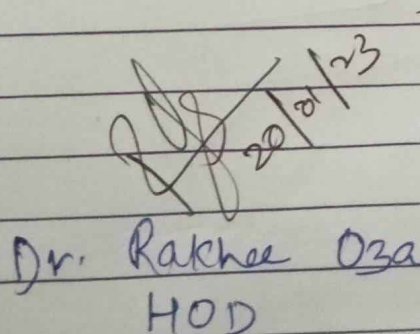 20/01/23
Dr. Rakhee Oza
HOD